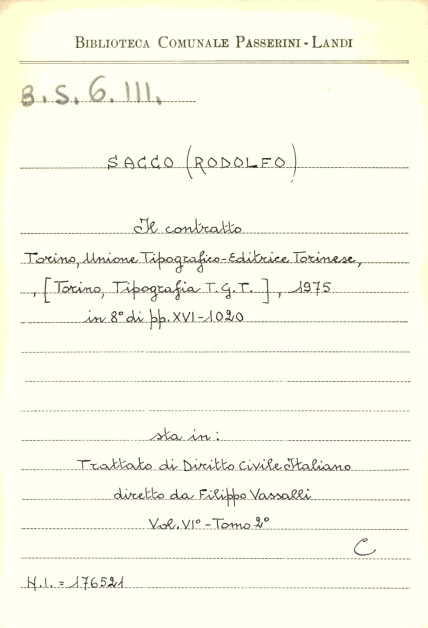 BIBLIOTECA COMUNALE PASSERINI - LANDI
B.S.6.III.
SACCO (RODOLFO)
Il contratto
Torino, Unione Tipografico-Editrice Torinese,
, [Torino, Tipografia T.G.T.], 1975
in 8° di pp. XVI-1020
sta in:
Trattato di Diritto Civile Italiano
diretto da Filippo Vassalli
Vol. VI° - Tomo 2°
C
N.I. = 176521